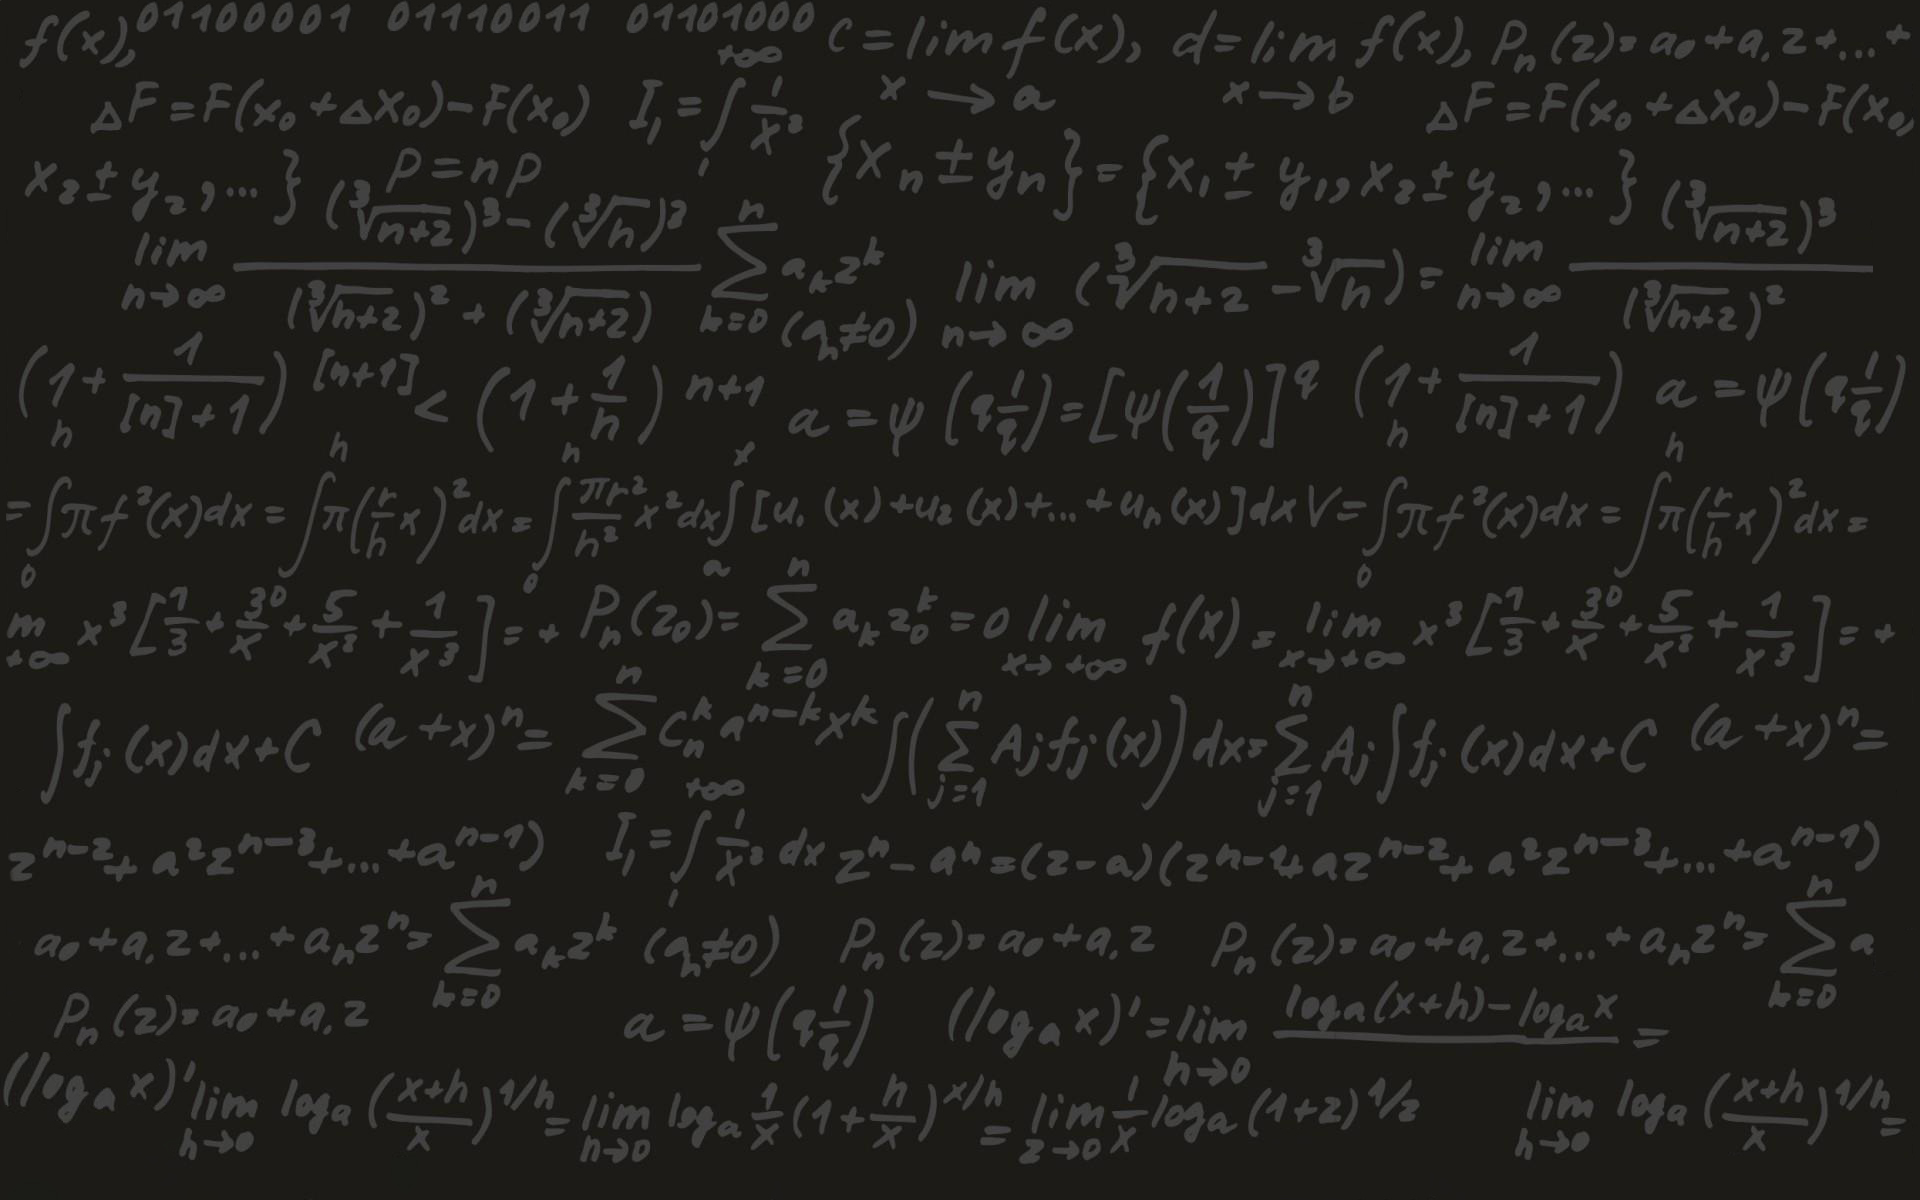 f(x), 01100001 01110011 01101000 +∞ c = lim f(x), d = lim f(x), Pn(z) = a0 + a1 z + ... +
ΔF = F(x0 + ΔX0) − F(x0) I1 = ∫ 1/x² x → a x → b ΔF = F(x0 + ΔX0) − F(x0,
x2 ± y2, ... } P = np {xn ± yn} = {x1 ± y1, x2 ± y2, ... }
lim n→∞ ((∛(n+2))³ − (∛n)³) / ((∛(n+2))² + (∛(n+2))) n Σ k=0 ak z^k (an ≠ 0) lim n→∞ (∛(n+2) − ∛n) = lim n→∞ (∛(n+2))³ / (∛(n+2))²
(1 + 1/([n]+1))^[n+1] < (1 + 1/n)^n+1 a = ψ(q 1/q) = [ψ(1/q)]^q (1 + 1/([n]+1)) a = ψ(q 1/q)
= ∫ 0 h π f²(x)dx = ∫ h π(r/h x)² dx = ∫ 0 h πr²/h² x² dx ∫ a x [u1(x) + u2(x) + ... + un(x)]dx V = ∫ 0 h π f²(x)dx = ∫ h π(r/h x)² dx =
m +∞ x³ [1/3 + 30/x + 5/x² + 1/x³] = + Pn(z0) = n Σ k=0 ak z0^k = 0 lim x→+∞ f(x) = lim x→+∞ x³ [1/3 + 30/x + 5/x² + 1/x³] = +
∫ fj(x)dx + C (a + x)^n = n Σ k=0 Cn^k a^n−k x^k ∫ (n Σ j=1 Aj fj(x)) dx = n Σ j=1 Aj ∫ fj(x)dx + C (a + x)^n =
z^n−2 + a² z^n−3 + ... + a^n−1) I1 = ∫ 1 +∞ 1/x² dx z^n − a^n = (z − a)(z^n−1 + a z^n−2 + a² z^n−3 + ... + a^n−1)
a0 + a1 z + ... + an z^n = n Σ k=0 ak z^k (an ≠ 0) Pn(z) = a0 + a1 z Pn(z) = a0 + a1 z + ... + an z^n = n Σ k=0 a
Pn(z) = a0 + a1 z a = ψ(q 1/q) (loga x)' = lim h→0 (loga(x+h) − loga x) / =
(loga x)' lim h→0 loga ((x+h)/x)^1/h = lim h→0 loga 1/x (1 + h/x)^x/h = lim z→0 1/x loga (1+z)^1/z lim h→0 loga ((x+h)/x)^1/h =